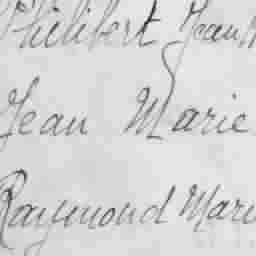 Philibert Jean
Jean Marie
Raymond Mari